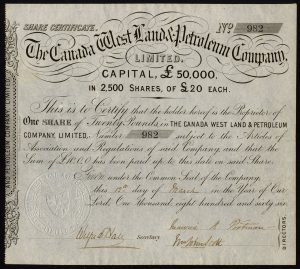 SHARE CERTIFICATE.
No 982
The Canada West Land & Petroleum Company,
LIMITED.
CAPITAL, £50,000.
IN 2,500 SHARES, OF £20 EACH.
This is to Certify that the holder hereof is the Proprietor of
ONE SHARE of Twenty Pounds in THE CANADA WEST LAND & PETROLEUM
COMPANY, LIMITED, Number 982 subject to the Articles of
Association and Regulations of said Company, and that the
Sum of £10.0.0 has been paid up to this date on said Share.
Given under the Common Seal of the Company
this day of March in the Year of Our
Lord One thousand eight hundred and sixty six
Secretary
DIRECTORS.